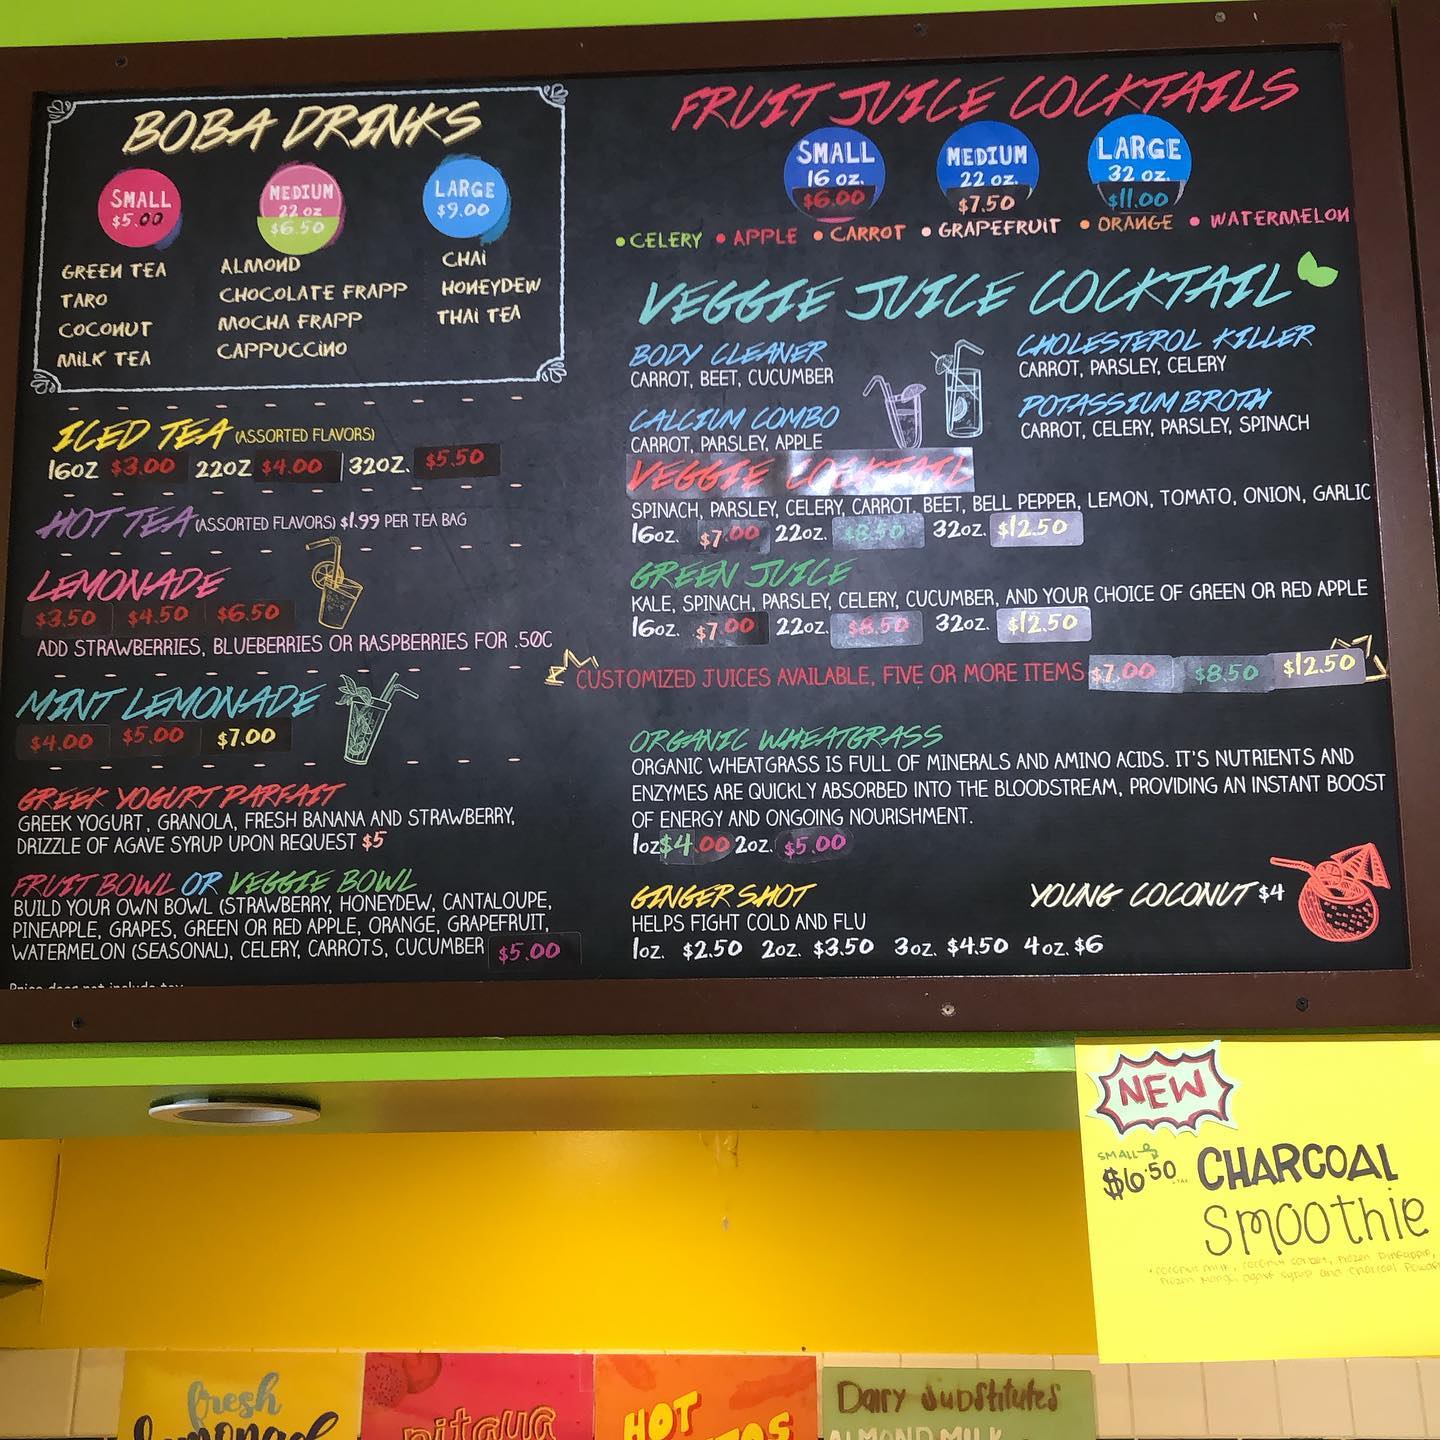 BOBA DRINKS
SMALL
$5.00
MEDIUM
22 oz
$6.50
LARGE
$9.00
GREEN TEA
TARO
COCONUT
MILK TEA
ALMOND
CHOCOLATE FRAPP
MOCHA FRAPP
CAPPUCCINO
CHAI
HONEYDEW
THAI TEA
ICED TEA (ASSORTED FLAVORS)
16OZ $3.00 22OZ $4.00 32OZ. $5.50
HOT TEA (ASSORTED FLAVORS) $1.99 PER TEA BAG
LEMONADE
$3.50 $4.50 $6.50
ADD STRAWBERRIES, BLUEBERRIES OR RASPBERRIES FOR .50C
MINT LEMONADE
$4.00 $5.00 $7.00
GREEK YOGURT PARFAIT
GREEK YOGURT, GRANOLA, FRESH BANANA AND STRAWBERRY,
DRIZZLE OF AGAVE SYRUP UPON REQUEST $5
FRUIT BOWL OR VEGGIE BOWL
BUILD YOUR OWN BOWL (STRAWBERRY, HONEYDEW, CANTALOUPE,
PINEAPPLE, GRAPES, GREEN OR RED APPLE, ORANGE, GRAPEFRUIT,
WATERMELON (SEASONAL), CELERY, CARROTS, CUCUMBER $5.00
Price does not include tax
FRUIT JUICE COCKTAILS
SMALL
16 oz.
$6.00
MEDIUM
22 oz.
$7.50
LARGE
32 oz.
$11.00
•CELERY •APPLE •CARROT •GRAPEFRUIT •ORANGE •WATERMELON
VEGGIE JUICE COCKTAIL
BODY CLEANER
CARROT, BEET, CUCUMBER
CALCIUM COMBO
CARROT, PARSLEY, APPLE
CHOLESTEROL KILLER
CARROT, PARSLEY, CELERY
POTASSIUM BROTH
CARROT, CELERY, PARSLEY, SPINACH
VEGGIE COCKTAIL
SPINACH, PARSLEY, CELERY, CARROT, BEET, BELL PEPPER, LEMON, TOMATO, ONION, GARLIC
16oz. $7.00 22oz. $8.50 32oz. $12.50
GREEN JUICE
KALE, SPINACH, PARSLEY, CELERY, CUCUMBER, AND YOUR CHOICE OF GREEN OR RED APPLE
16oz. $7.00 22oz. $8.50 32oz. $12.50
CUSTOMIZED JUICES AVAILABLE, FIVE OR MORE ITEMS $7.00 $8.50 $12.50
ORGANIC WHEATGRASS
ORGANIC WHEATGRASS IS FULL OF MINERALS AND AMINO ACIDS. IT'S NUTRIENTS AND
ENZYMES ARE QUICKLY ABSORBED INTO THE BLOODSTREAM, PROVIDING AN INSTANT BOOST
OF ENERGY AND ONGOING NOURISHMENT.
1oz $4.00 2oz. $5.00
GINGER SHOT
HELPS FIGHT COLD AND FLU
1oz. $2.50 2oz. $3.50 3oz. $4.50 4oz. $6
YOUNG COCONUT $4
NEW
SMALL
$6.50 CHARCOAL
Smoothie
•coconut milk, coconut sorbet, frozen pineapple,
frozen mango, agave syrup and charcoal
fresh
lemonade
pitaya
HOT
Dairy Substitutes
ALMOND MILK